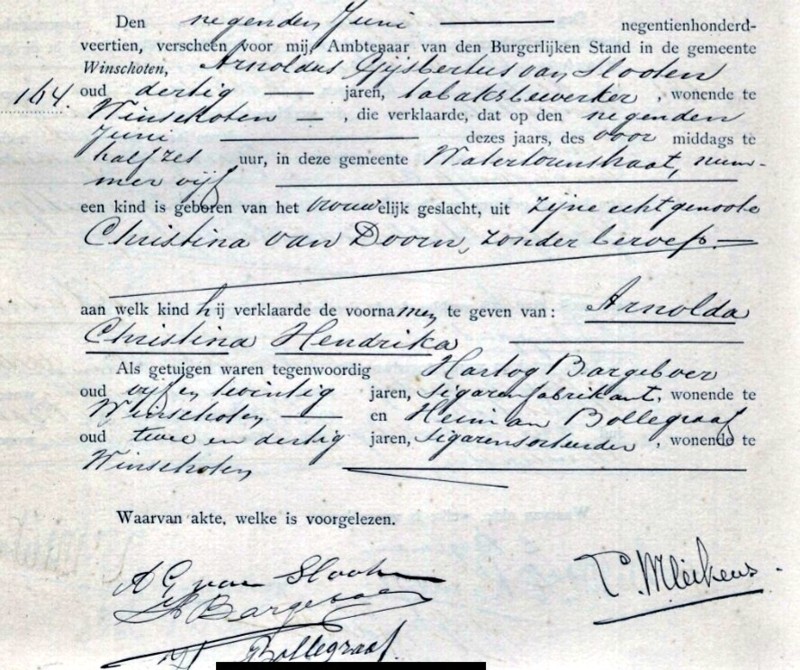 Den negenden Juni negentienhonderd-
veertien, verscheen voor mij, Ambtenaar van den Burgerlijken Stand in de gemeente
Winschoten, Arnoldus Gijsbertus van Slooten
164. oud dertig jaren, tabaksbewerker, wonende te
Winschoten, die verklaarde, dat op den negenden
Juni dezes jaars, des voor middags te
half zes uur, in deze gemeente Watertorenstraat, num-
mer vijf
een kind is geboren van het vrouwelijk geslacht, uit zijne echtgenoote
Christina van Doorn, zonder beroep.
aan welk kind hij verklaarde de voornamen te geven van: Arnolda
Christina Hendrika
Als getuigen waren tegenwoordig Hartog Bargeboer
oud vijf en twintig jaren, sigarenfabrikant, wonende te
Winschoten en Heiman Bollegraaf
oud twee en dertig jaren, sigarensorteerder, wonende te
Winschoten
Waarvan akte, welke is voorgelezen.
A G van Slooten
H Bargeboer
H Bollegraaf.